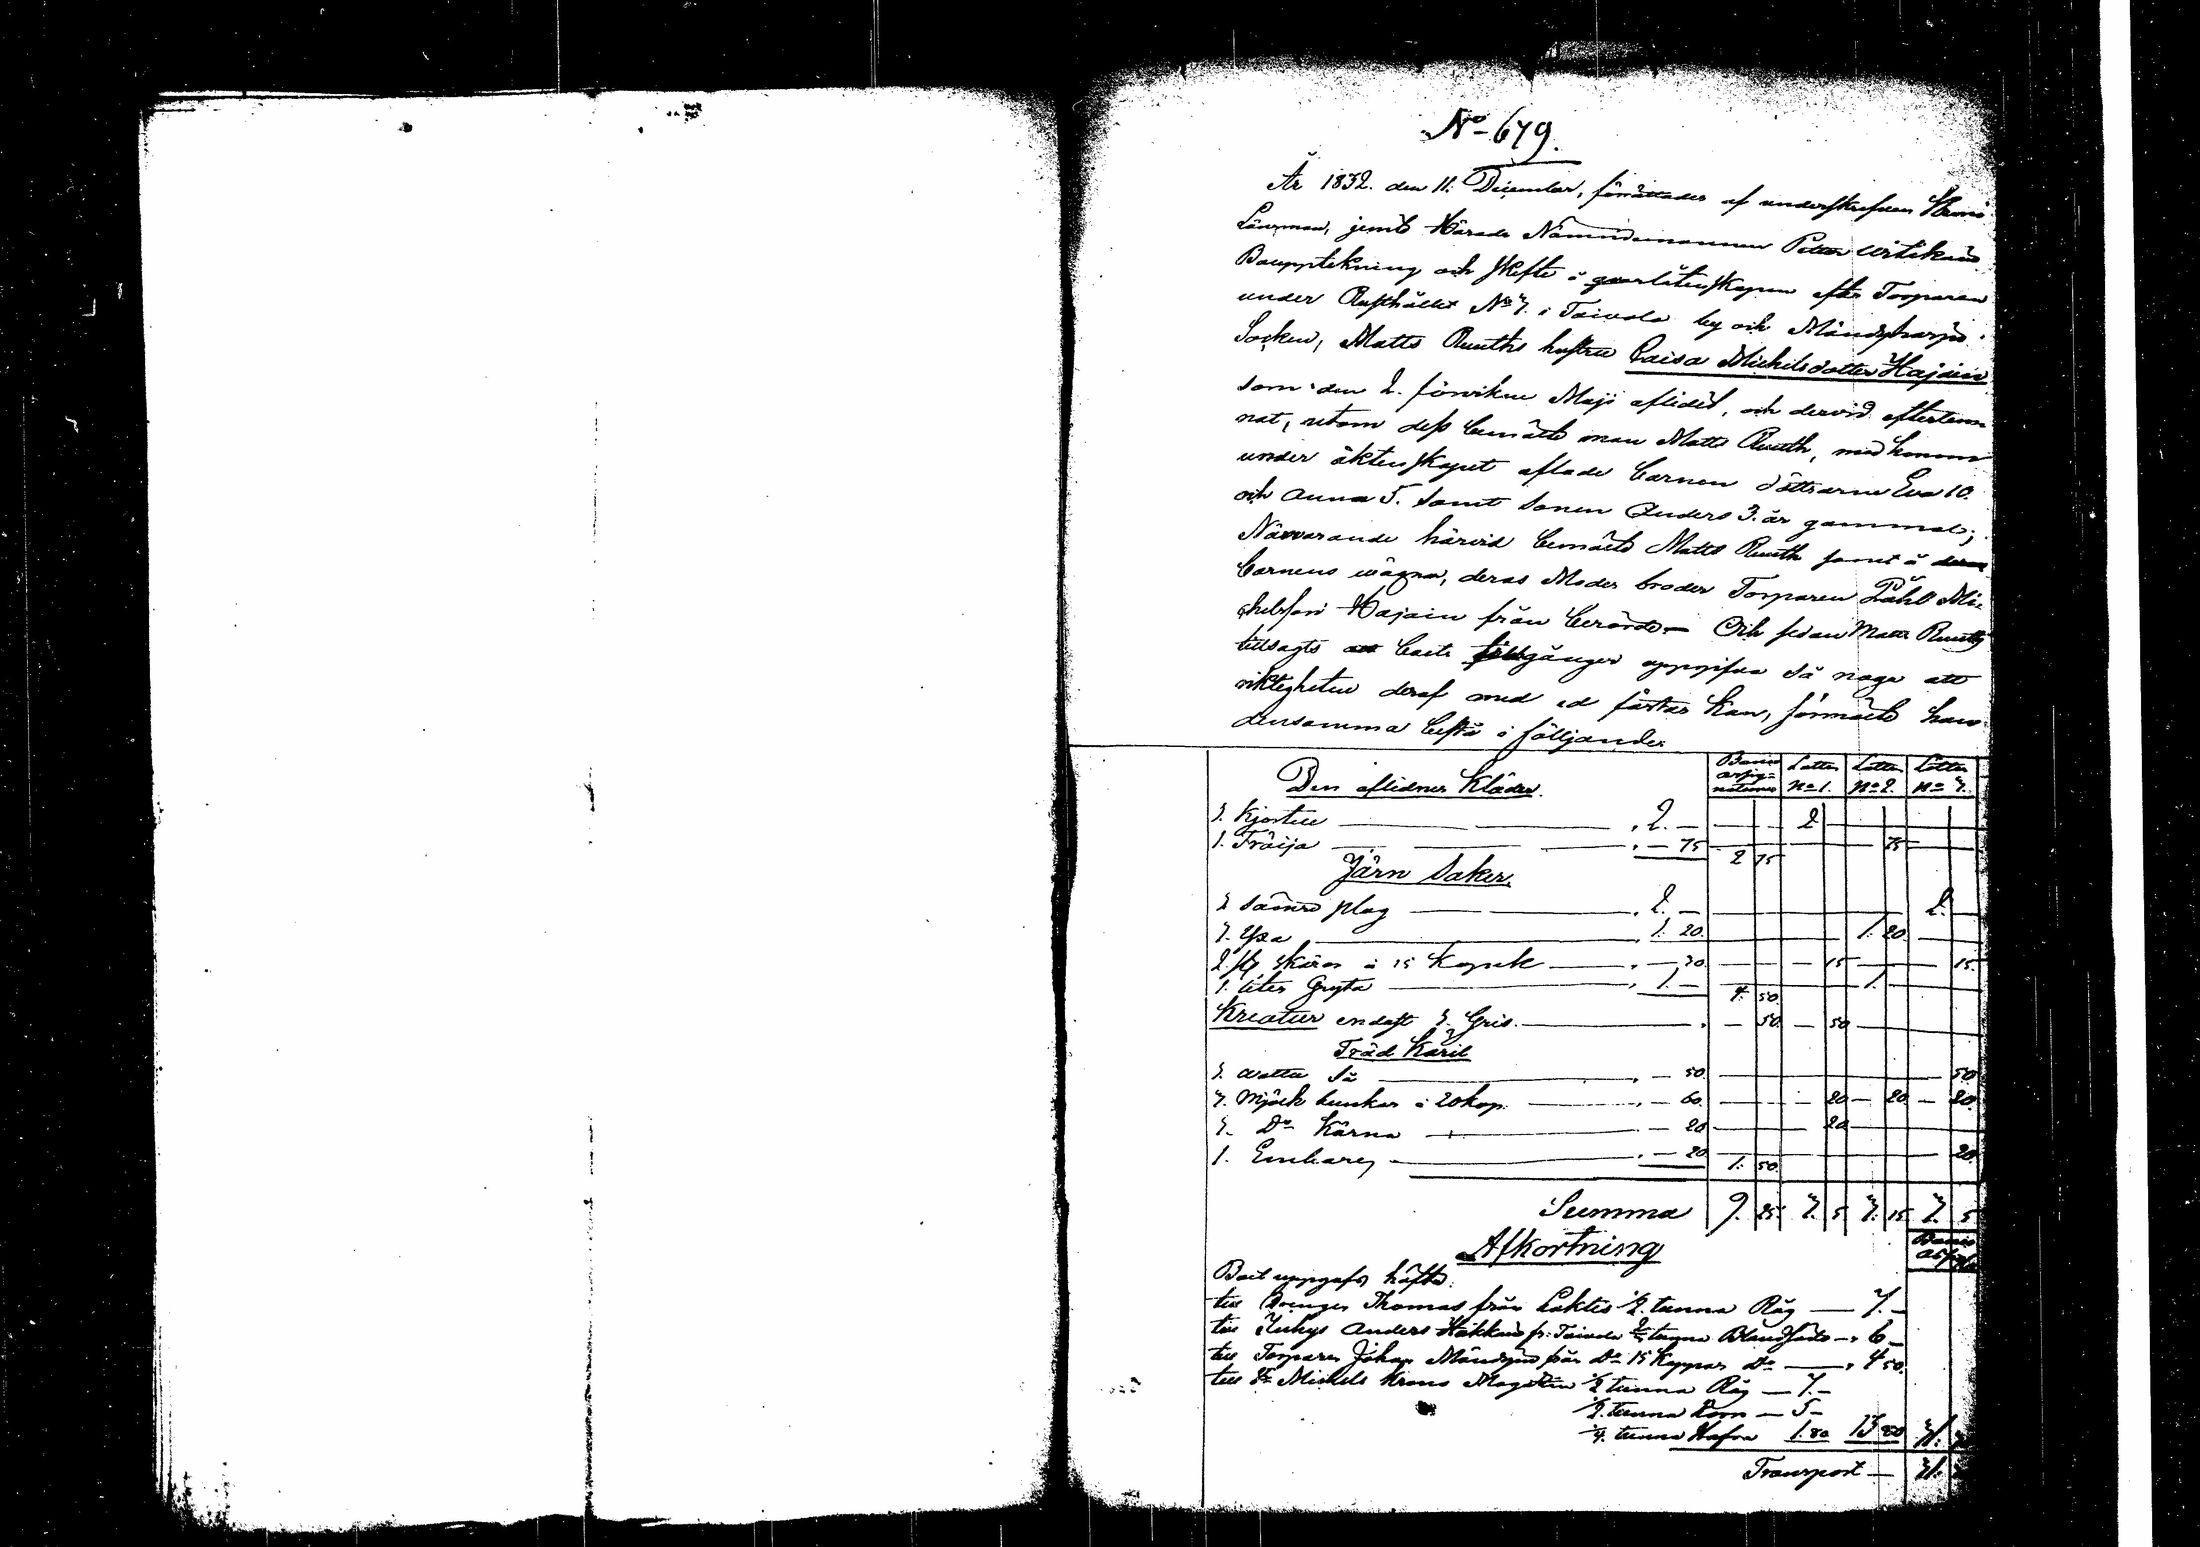 No 679.
År 1832. den 11. December, förrättades af underskrefven Krono
Länsman, jemte Härads Nämndemannen Petter
Bouppteckning och skifte i qvarlåtenskapen efter Torparen
under Rusthållet No 7. i Toivola by och Mändyharju
Socken, Matts Ruuths hustru Caisa Michelsdotter Hajain
som den 2. förvikne Maji aflidit, och dervid efterlem
nat, utom dess bemälte man Matts Ruuth, med honom
under äktenskapet aflade barnen döttrarne Eva 10.
och Anna 5. samt sonen Anders 3. år gammal;
Närvarande härvid bemälte Matts Ruuth samt å
barnens wägnar, deras Moder broder Torparen Påhl Mi-
chelsson Hajain från berörde — Och sedan Matts Ruuth
tillsagts att boets tillgångar uppgifva så noga att
riktigheten deraf med ed fästas kan, förmälte han
densamma bestå i följande:
Den aflidnes Kläder. Banco assig-nationer Lotten No 1. Lotten No 2. Lotten No 3.
1. Kjortel — 2. — 2
1. Tröija — 75 2 75 75
Järn Saker.
1 Sämre plog — 2. — 2.
1. Yxa — 1. 20. 1. 20.
2. st. skäror à 15 Kopek — 30. 15 15.
1. liten Gryta — 1. — 4. 50. 1.
Kreatur endast 1. Gris. — 50. — 50
Träd Käril
1. Så — 50. 50
3. Mjölk bunkar à 20 kop. — 60. 20 — 20 — 20.
1. Do Kärna — 20 20
1. Embare — 20 1. 50. 20.
Summa 9. 25. 3. 5 3. 15 3. 5
Afkortning Banco
Boets uppgafs häfta:
till Thomas från ½ tunna Råg — 7. —
till Anders Häkkäin fr. Toivola tunna Blandsäd — 6 —
till Torparen Johan från Do 15 Kappar Do — 4 50.
till St. Michels Krono Magazin ½ tunna Råg — 7. —
½ tunna Korn — 5 —
¼ tunna Hafra 1. 80 13 80 31.
Transport — 31.